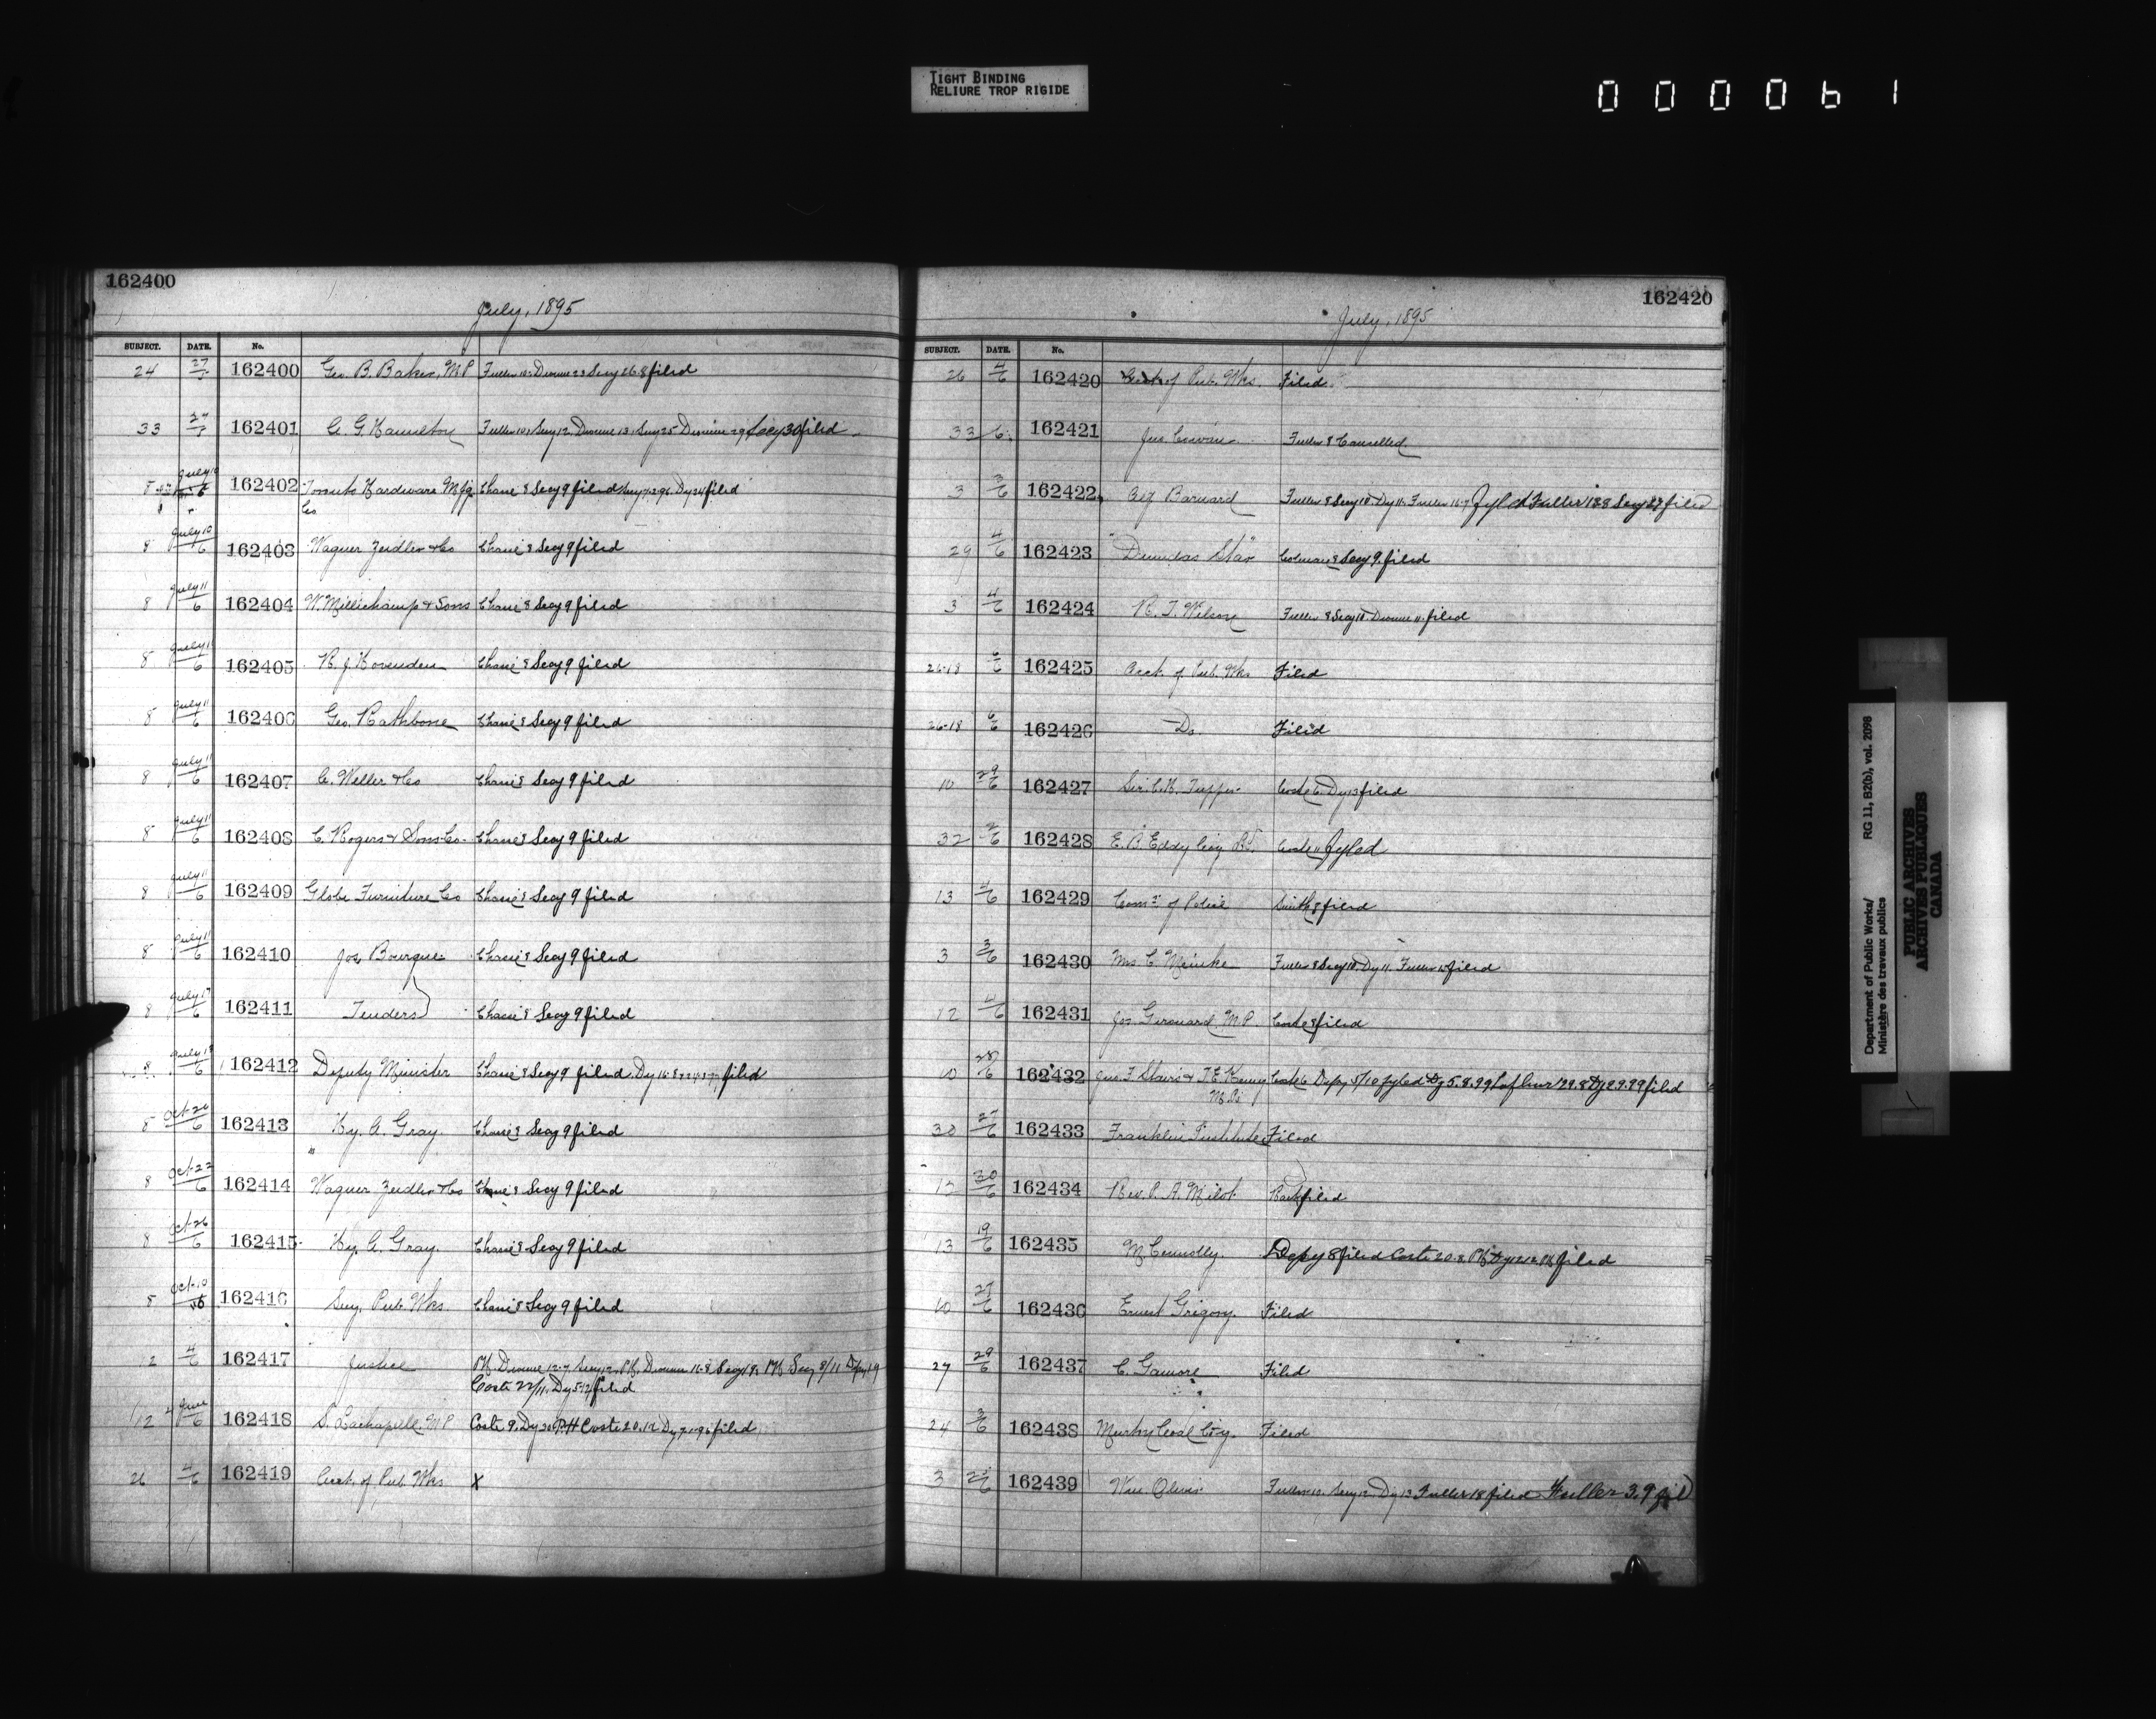 TIGHT BINDING
RELIURE TROP RIGIDE
000061
162400
July, 1895
SUBJECT. DATE. No.
24 27/5 162400 Geo. B. Baker, M.P. Fuller 10. Dionne 23 Secy 26.8 filed
33 162401 C. G. Hamilton Fuller 10, Secy 12, Dionne 13, Secy 25 Dionne 29 Secy 30 filed
8 July 10 162402 Toronto Hardware Mfg. Chassé 8 Secy 9 filed Dy 24 filed
Co
8 July 10/6 162403 Wagner Zeidler & Co Chassé 8 Secy 9 filed
8 July 11/6 162404 W. Millichamp & Sons Chassé 8 Secy 9 filed
8 July 11/6 162405 R. J. Hovenden Chassé 8 Secy 9 filed
8 July 11/6 162406 Geo. Rathbone Chassé 8 Secy 9 filed
8 July 11/6 162407 C. Weller & Co Chassé 8 Secy 9 filed
8 July 11/6 162408 C. Rogers & Sons Co. Chassé 8 Secy 9 filed
8 July 11/6 162409 Globe Furniture Co Chassé 8 Secy 9 filed
8 July 11/6 162410 Jos. Bourque Chassé 8 Secy 9 filed
8 July 17/6 162411 Tenders Chassé 8 Secy 9 filed
8 July 18/6 162412 Deputy Minister Chassé 8 Secy 9 filed. Dy 16.8 filed
8 Oct. 20/6 162413 Hy. A. Gray Chassé 8 Secy 9 filed
8 Oct. 22/6 162414 Wagner Zeidler & Co Chassé 8 Secy 9 filed
8 Oct. 26/6 162415 Hy. A. Gray. Chassé 8 Secy 9 filed
8 Oct. 10/6 162416 Secy. Pub. Wks. Chassé 8 Secy 9 filed
12 4/6 162417 Justice PH. Dionne 12.7 Secy 12. PH. Dionne 16.8 Secy 19. PH Secy 8/11 Dpy 19
Coste 22/11. Dy 5.12 filed
12 4 June/6 162418 S. Lachapelle, M.P. Coste 9. Dy 20 PH Coste 20.12 Dy 7.1.96 filed
26 4/6 162419 Acct. of Pub. Wks X
162420
July, 1895
SUBJECT. DATE. No.
26 4/6 162420 Acct. of Pub. Wks. Filed
33 6 162421 Jas. Cowan Fuller 8 Cancelled.
3 3/6 162422 Barnard Fuller 8 Secy 10. Dy 11. Fuller 16.7 fyled Fuller 13.8 Secy filed
29 4/6 162423 "Dundas Star" Colman 8 Secy 9. filed
3 4/6 162424 R. T. Wilson Fuller 8 Secy 10. Dionne 11. filed
26.18 6/6 162425 Acct. of Pub. Wks Filed
26.18 6/6 162426 Do Filed
10 29/6 162427 Sir C. H. Tupper Coste 6. Dy 13 filed
32 162428 E. B. Eddy Coy Ld. Coste 11 fyled
13 4/6 162429 Comr. of Police Smith 8 filed
3 3/6 162430 Mrs C. Meinke Fuller 8 Secy 10. Dy 11. Fuller 15 filed
12 4/6 162431 Jos. Girouard, M.P. Coste 8 filed
10 28/6 162432 Jno. F. Stairs & T. E. Kenny Coste 6 Depy 5/10 fyled Dy 5.8.99 Lafleur 29.8 Dy 29.99 filed
M.Ps
30 27/6 162433 Franklin Institute Filed
12 30/6 162434 Rev. P. A. Milot filed
13 19/6 162435 M. Connolly. Depy 8 filed Coste 20.8. PH Dy PH filed
10 27/6 162436 Ernest Grigory. Filed
27 29/6 162437 C. Gamore Filed
24 3/6 162438 Coal Coy. Filed
3 162439 Wm. Oliver Fuller 10. Secy 12. Dy 13 Fuller 18 filed Fuller 3.9 fild
Department of Public Works/ RG 11, B2(b), vol. 2098
Ministère des travaux publics
PUBLIC ARCHIVES
ARCHIVES PUBLIQUES
CANADA